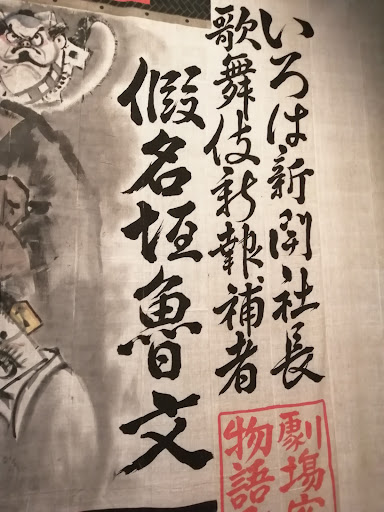 いろは新聞社長
歌舞伎新報補者
假名垣魯文
劇場
物語